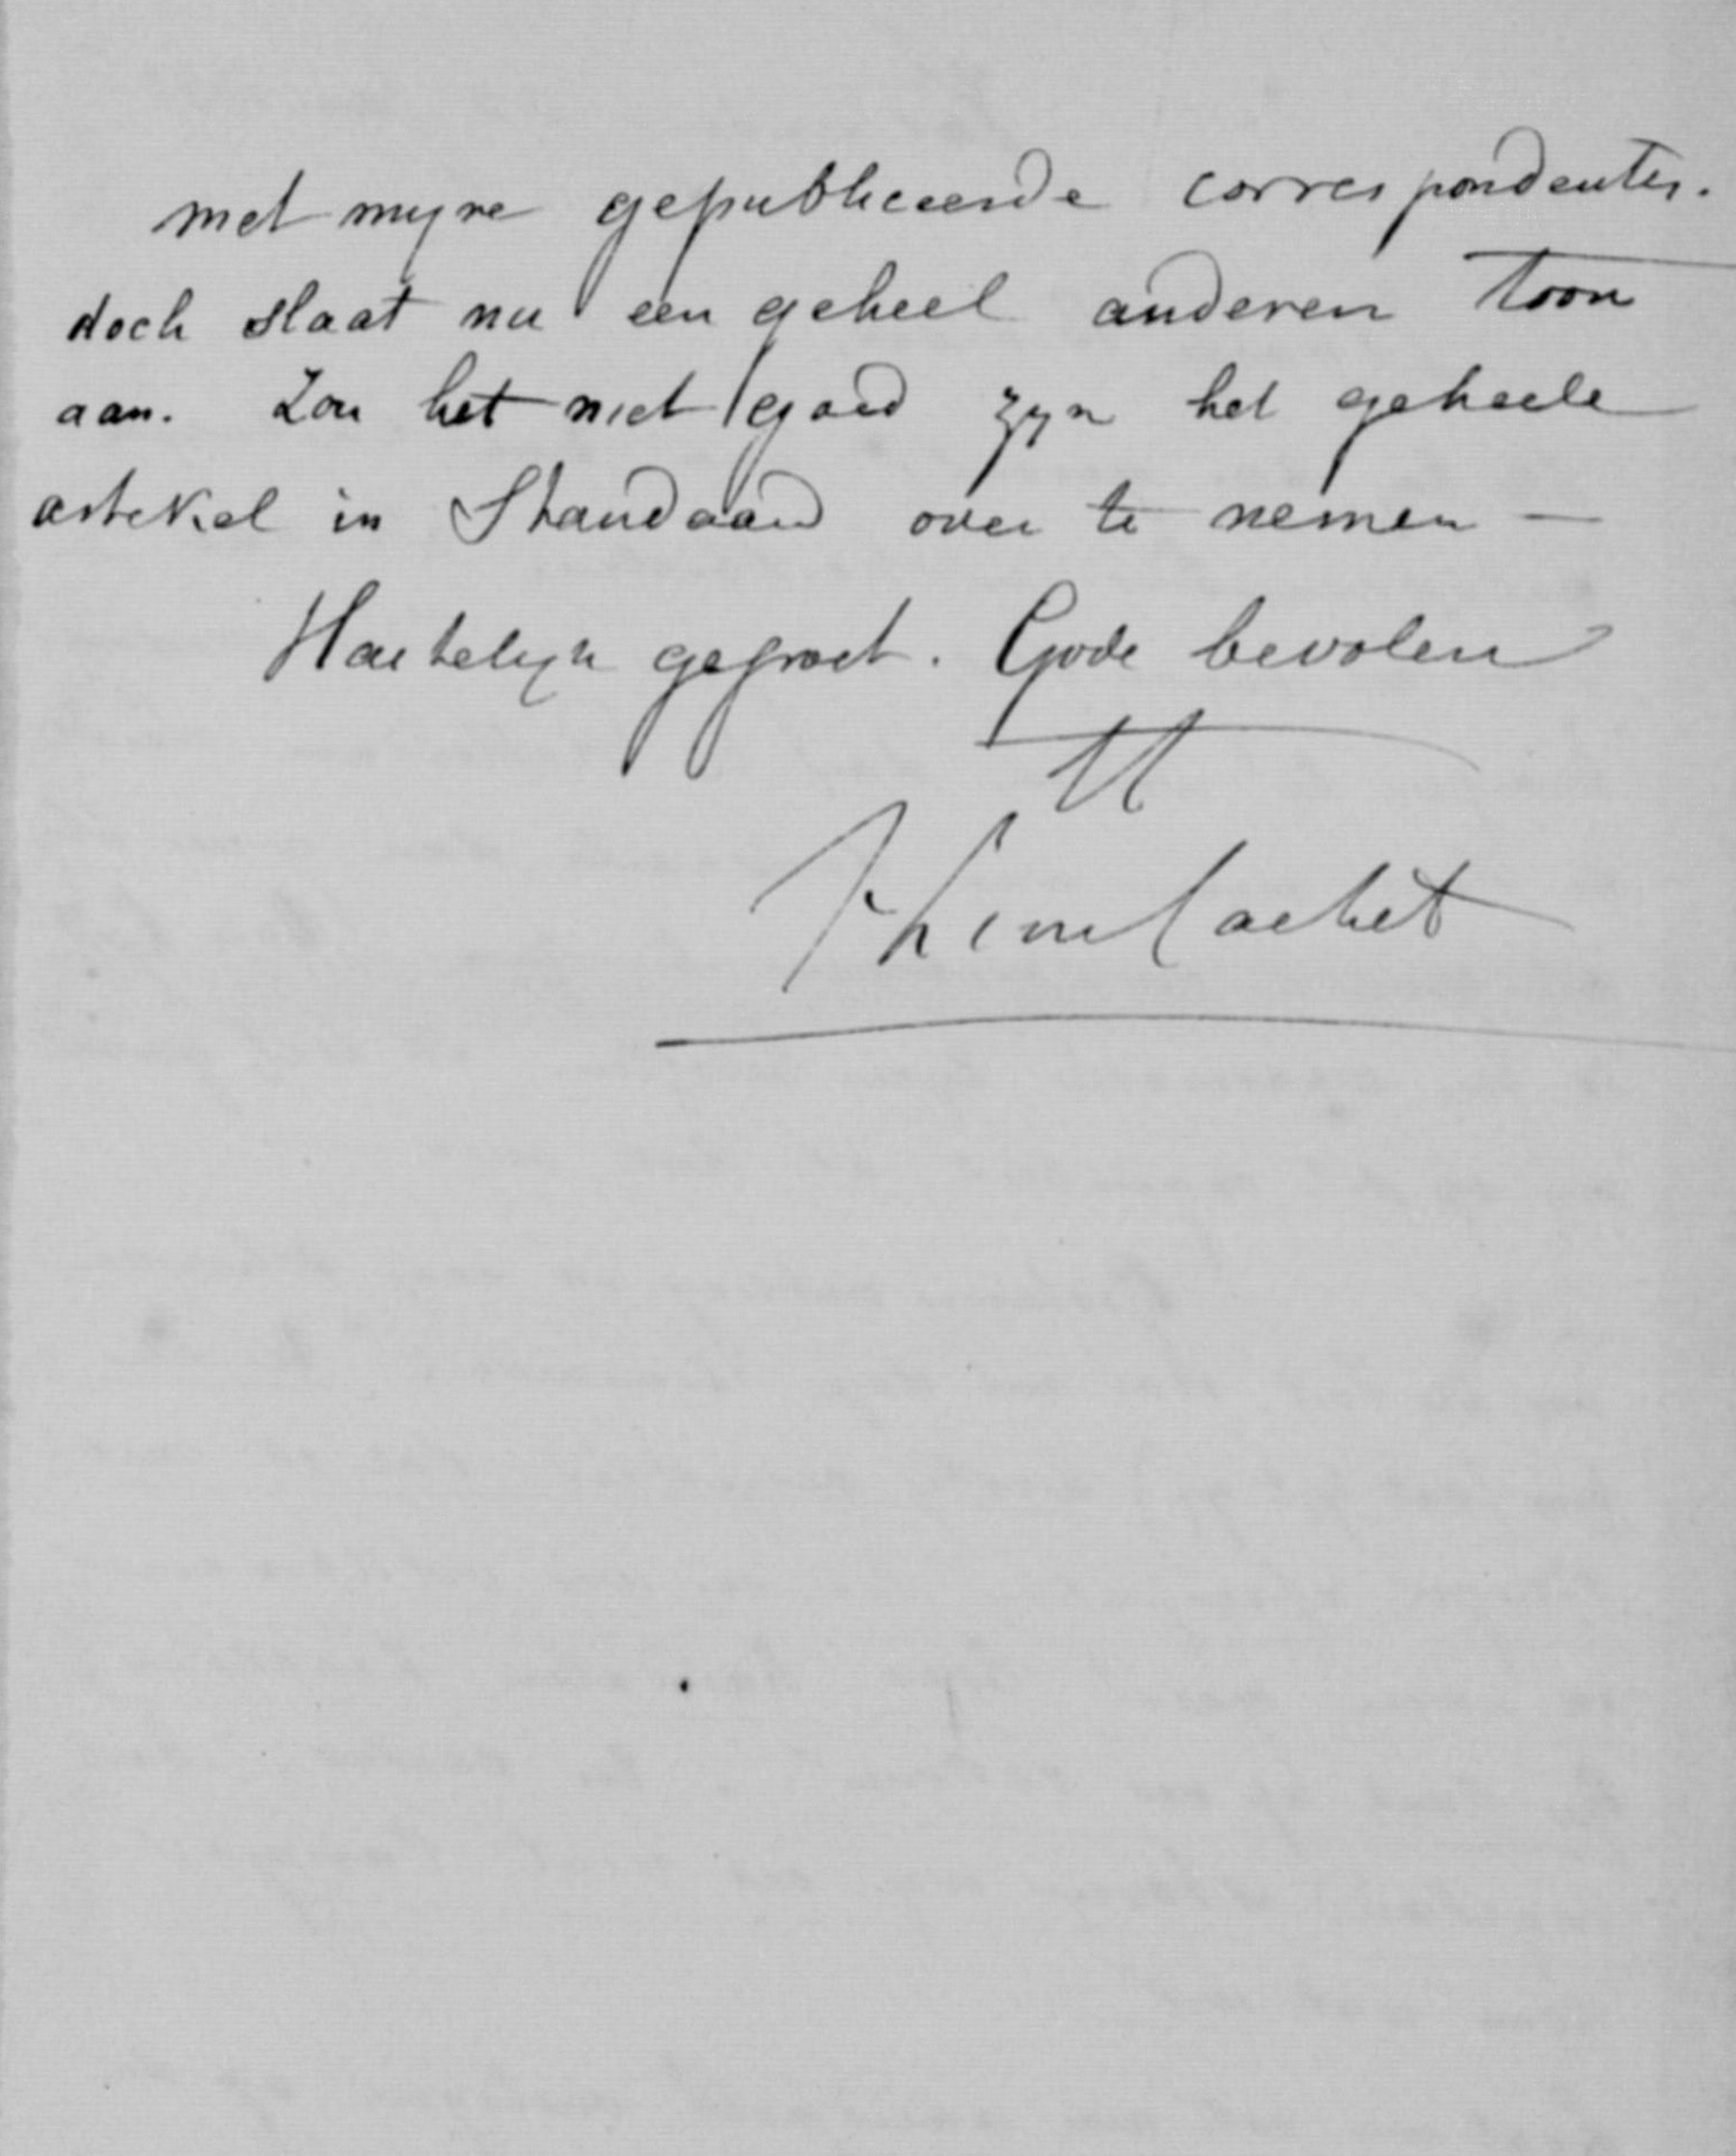 met mijne gepubliceerde correspondentie.
doch slaat nu een geheel anderen toon
aan. Zou het niet goed zijn het geheele
artikel in Standaard over te nemen —
Hartelijk gegroet. Gode bevolen
tt
F Lion Cachet